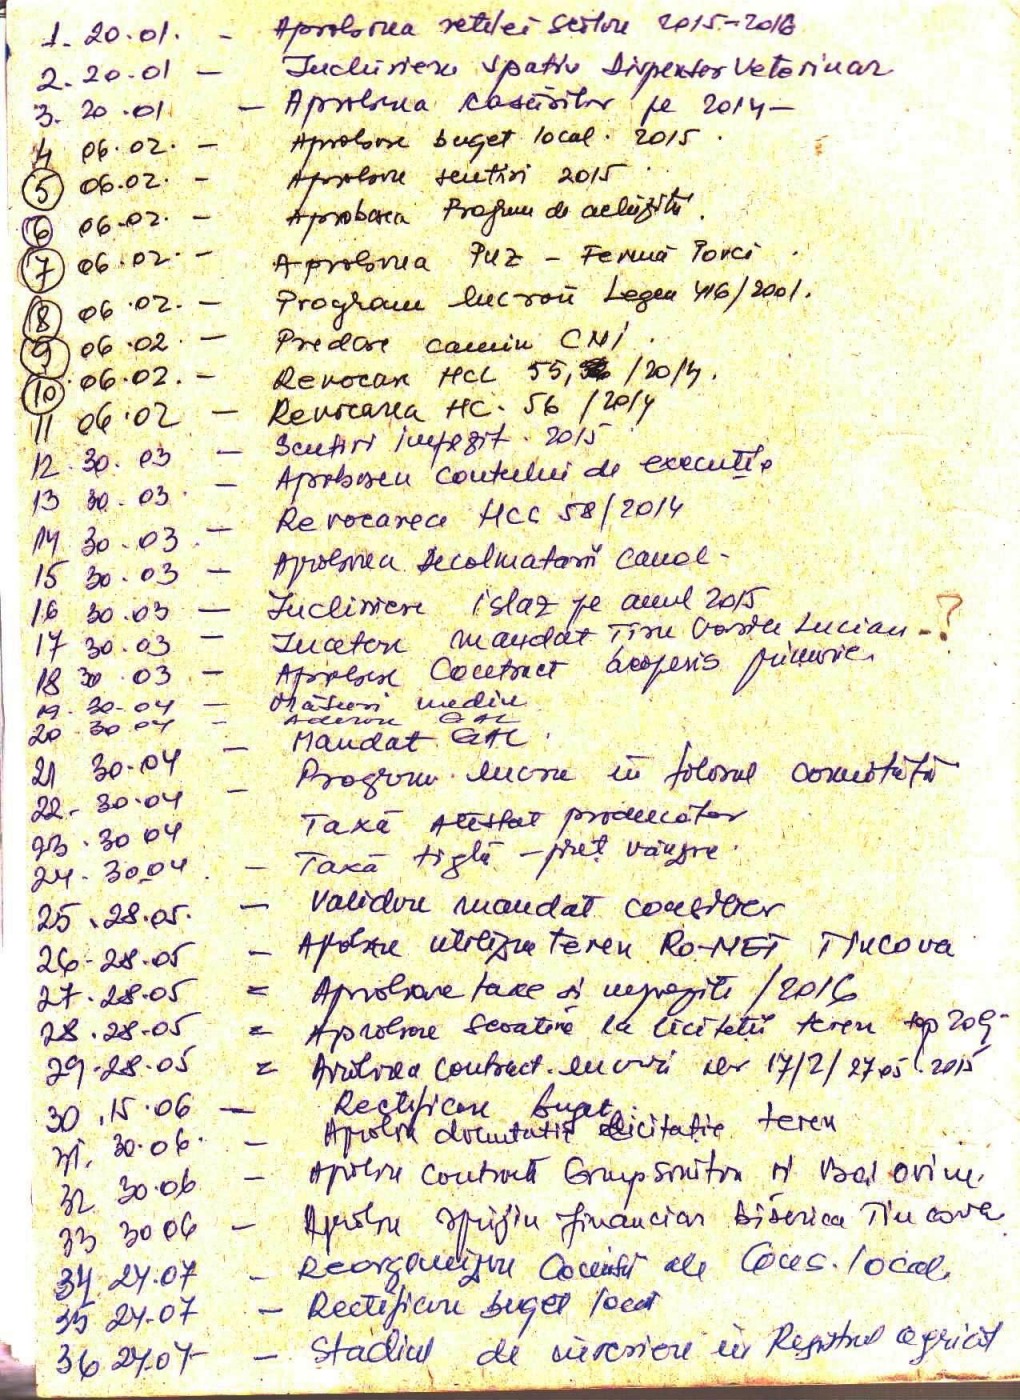 1. 20.01. - Aprobarea rețelei școlare 2015-2016
2. 20.01 - Inchiriere spațiu Dispensar Veterinar
3. 20.01 - Aprobarea pe 2014-
4 06.02. - Aprobare buget local. 2015.
5 06.02. - Aprobare scutiri 2015.
6 06.02. - Aprobarea Program de achiziții.
7 06.02. - Aprobarea PUZ - Fermă Porci.
8 06.02. - Program lucrări Legea 416/2001.
9 06.02 - Predare camin CNI.
10 06.02. - Revocare HCL 55, /2014.
11 06.02 - Revocarea HC. 56 /2014
12. 30.03 - Scutiri impozit. 2015
13 30.03. - Aprobarea contului de execuție
14 30.03. - Revocarea HCL 58/2014
15 30.03 - Aprobarea Decolmatării canal-
16 30.03 - Inchiriere islaz pe anul 2015
17 30.03 - Incetare mandat Vasile Lucian-?
18 30.03 - Aprobare Contract primarie.
19. 30-04 - Măsuri mediu
20 30 04 - Aderare GAL
21 30.04 - Mandat GAL.
22. 30.04 - Program lucru în folosul comunității
23. 30 04 Taxă Atestat producător
24. 30.04. - Taxă țiglă - preț vânzare.
25. 28.05. - Validare mandat consilier
26- 28.05 - Aprobare utilizare teren RO-MET Tincova
27. 28.05 = Aprobare taxe și impozite /2016
28. 28.05 = Aprobare scoatere la licitații teren top 209-
29. 28.05 = Aprobarea contract lucrări nr 17/2/27.05.2015
30. 15.06 - Rectificare buget.
31. 30.06. - Aprobare documentații licitație teren
32 30.06 - Aprobare contract și
33 30 06 - Aprobare sprijin financiar Biserica Tincova
34 27.07 - Reorganizare Comisii ale Cons. local
35 27.07 - Rectificare buget local
36 27.07- - Stadiul de inscriere in Registrul agricol